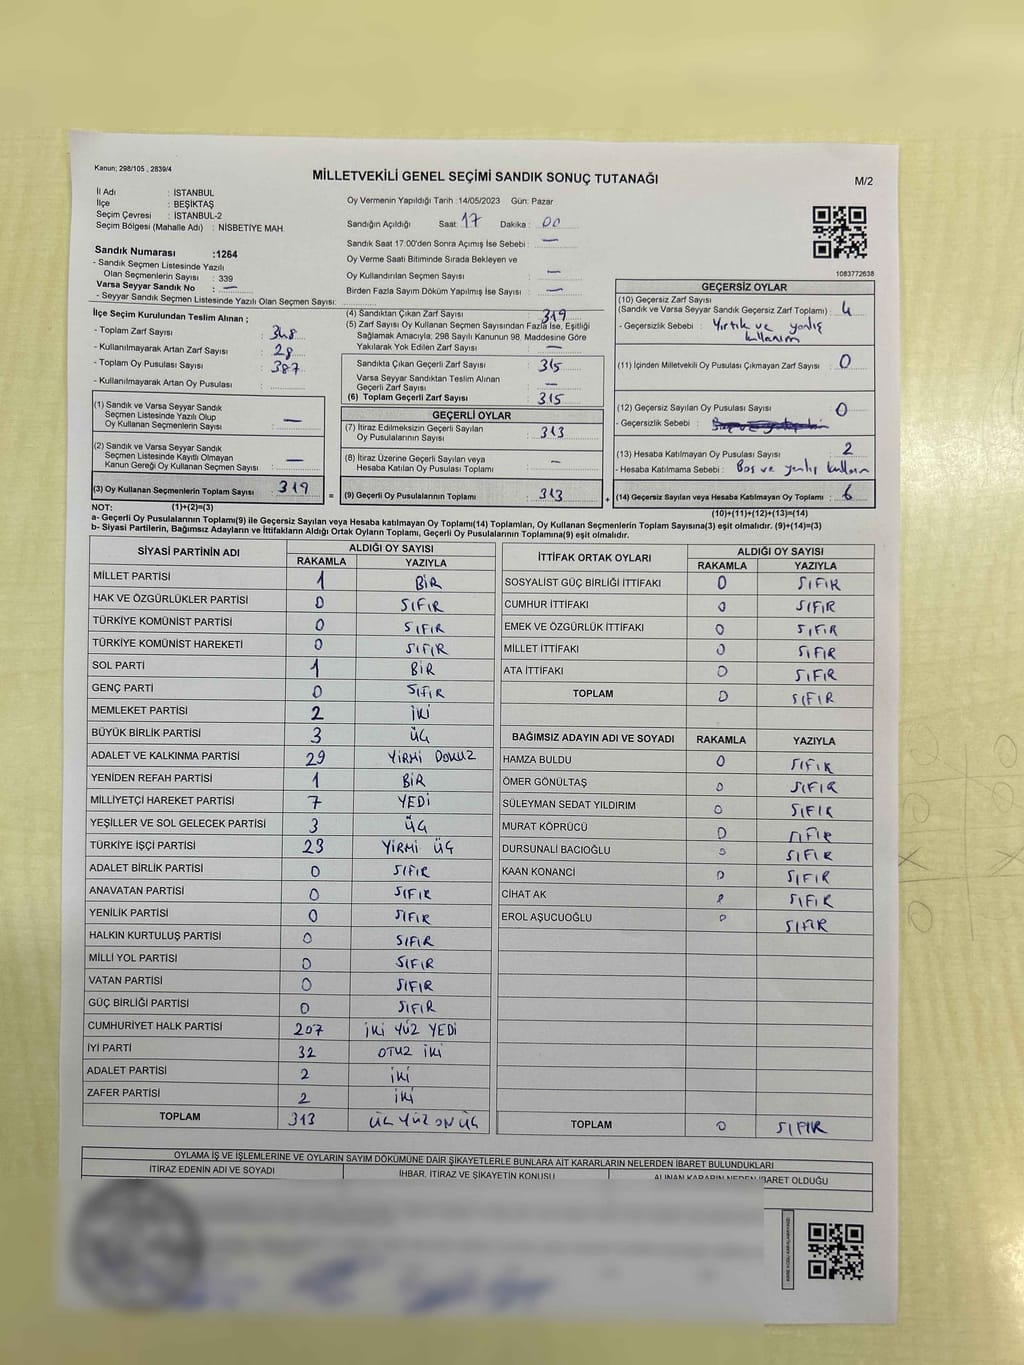 Kanun; 298/105 , 2839/4
MİLLETVEKİLİ GENEL SEÇİMİ SANDIK SONUÇ TUTANAĞI
M/2
İl Adı : İSTANBUL
İlçe : BEŞİKTAŞ
Seçim Çevresi : İSTANBUL-2
Seçim Bölgesi (Mahalle Adı) : NİSBETİYE MAH.
Sandık Numarası :1264
- Sandık Seçmen Listesinde Yazılı
Olan Seçmenlerin Sayısı : 339
Varsa Seyyar Sandık No : —
- Seyyar Sandık Seçmen Listesinde Yazılı Olan Seçmen Sayısı:
Oy Vermenin Yapıldığı Tarih :14/05/2023 Gün: Pazar
Sandığın Açıldığı Saat: 17 Dakika : 00
Sandık Saat 17:00'den Sonra Açımış İse Sebebi : —
Oy Verme Saati Bitiminde Sırada Bekleyen ve
Oy Kullandırılan Seçmen Sayısı : —
Birden Fazla Sayım Döküm Yapılmış İse Sayısı : —
1083772638
İlçe Seçim Kurulundan Teslim Alınan ;
- Toplam Zarf Sayısı : 348
- Kullanılmayarak Artan Zarf Sayısı : 28
- Toplam Oy Pusulası Sayısı : 387
- Kullanılmayarak Artan Oy Pusulası :
(1) Sandık ve Varsa Seyyar Sandık
Seçmen Listesinde Yazılı Olup
Oy Kullanan Seçmenlerin Sayısı : —
(2) Sandık ve Varsa Seyyar Sandık
Seçmen Listesinde Kayıtlı Olmayan
Kanun Gereği Oy Kullanan Seçmen Sayısı : —
(3) Oy Kullanan Seçmenlerin Toplam Sayısı : 319
(1)+(2)=(3)
(4) Sandıktan Çıkan Zarf Sayısı : 319
(5) Zarf Sayısı Oy Kullanan Seçmen Sayısından Fazla İse, Eşitliği
Sağlamak Amacıyla; 298 Sayılı Kanunun 98. Maddesine Göre
Yakılarak Yok Edilen Zarf Sayısı : —
Sandıkta Çıkan Geçerli Zarf Sayısı : 315
Varsa Seyyar Sandıktan Teslim Alınan
Geçerli Zarf Sayısı : —
(6) Toplam Geçerli Zarf Sayısı : 315
GEÇERLİ OYLAR
(7) İtiraz Edilmeksizin Geçerli Sayılan
Oy Pusulalarının Sayısı : 313
(8) İtiraz Üzerine Geçerli Sayılan veya
Hesaba Katılan Oy Pusulası Toplamı : —
= (9) Geçerli Oy Pusulalarının Toplamı : 313 +
GEÇERSİZ OYLAR
(10) Geçersiz Zarf Sayısı
(Sandık ve Varsa Seyyar Sandık Geçersiz Zarf Toplamı) : 4
- Geçersizlik Sebebi : Yırtık ve yanlış
kullanım
(11) İçinden Milletvekili Oy Pusulası Çıkmayan Zarf Sayısı : 0
(12) Geçersiz Sayılan Oy Pusulası Sayısı : 0
- Geçersizlik Sebebi :
(13) Hesaba Katılmayan Oy Pusulası Sayısı : 2
- Hesaba Katılmama Sebebi : Boş ve yanlış kullanım
(14) Geçersiz Sayılan veya Hesaba Katılmayan Oy Toplamı : 6
(10)+(11)+(12)+(13)=(14)
NOT:
a- Geçerli Oy Pusulalarının Toplamı(9) ile Geçersiz Sayılan veya Hesaba katılmayan Oy Toplamı(14) Toplamları, Oy Kullanan Seçmenlerin Toplam Sayısına(3) eşit olmalıdır. (9)+(14)=(3)
b- Siyasi Partilerin, Bağımsız Adayların ve İttifakların Aldığı Ortak Oyların Toplamı, Geçerli Oy Pusulalarının Toplamına(9) eşit olmalıdır.
SİYASİ PARTİNİN ADI ALDIĞI OY SAYISI
RAKAMLA YAZIYLA
MİLLET PARTİSİ 1 BİR
HAK VE ÖZGÜRLÜKLER PARTİSİ 0 SIFIR
TÜRKİYE KOMÜNİST PARTİSİ 0 SIFIR
TÜRKİYE KOMÜNİST HAREKETİ 0 SIFIR
SOL PARTİ 1 BİR
GENÇ PARTİ 0 SIFIR
MEMLEKET PARTİSİ 2 İKİ
BÜYÜK BİRLİK PARTİSİ 3 ÜÇ
ADALET VE KALKINMA PARTİSİ 29 YİRMİ DOKUZ
YENİDEN REFAH PARTİSİ 1 BİR
MİLLİYETÇİ HAREKET PARTİSİ 7 YEDİ
YEŞİLLER VE SOL GELECEK PARTİSİ 3 ÜÇ
TÜRKİYE İŞÇİ PARTİSİ 23 YİRMİ ÜÇ
ADALET BİRLİK PARTİSİ 0 SIFIR
ANAVATAN PARTİSİ 0 SIFIR
YENİLİK PARTİSİ 0 SIFIR
HALKIN KURTULUŞ PARTİSİ 0 SIFIR
MİLLİ YOL PARTİSİ 0 SIFIR
VATAN PARTİSİ 0 SIFIR
GÜÇ BİRLİĞİ PARTİSİ 0 SIFIR
CUMHURİYET HALK PARTİSİ 207 İKİ YÜZ YEDİ
İYİ PARTİ 32 OTUZ İKİ
ADALET PARTİSİ 2 İKİ
ZAFER PARTİSİ 2 İKİ
TOPLAM 313 ÜÇ YÜZ ON ÜÇ
İTTİFAK ORTAK OYLARI ALDIĞI OY SAYISI
RAKAMLA YAZIYLA
SOSYALİST GÜÇ BİRLİĞİ İTTİFAKI 0 SIFIR
CUMHUR İTTİFAKI 0 SIFIR
EMEK VE ÖZGÜRLÜK İTTİFAKI 0 SIFIR
MİLLET İTTİFAKI 0 SIFIR
ATA İTTİFAKI 0 SIFIR
TOPLAM 0 SIFIR
BAĞIMSIZ ADAYIN ADI VE SOYADI RAKAMLA YAZIYLA
HAMZA BULDU 0 SIFIR
ÖMER GÖNÜLTAŞ 0 SIFIR
SÜLEYMAN SEDAT YILDIRIM 0 SIFIR
MURAT KÖPRÜCÜ 0 SIFIR
DURSUNALİ BACIOĞLU 0 SIFIR
KAAN KONANCİ 0 SIFIR
CİHAT AK 0 SIFIR
EROL AŞUCUOĞLU 0 SIFIR
TOPLAM 0 SIFIR
OYLAMA İŞ VE İŞLEMLERİNE VE OYLARIN SAYIM DÖKÜMÜNE DAİR ŞİKAYETLERLE BUNLARA AİT KARARLARIN NELERDEN İBARET BULUNDUKLARI
İTİRAZ EDENİN ADI VE SOYADI İHBAR, İTİRAZ VE ŞİKAYETİN KONUSU ALINAN KARARIN NEDEN İBARET OLDUĞU